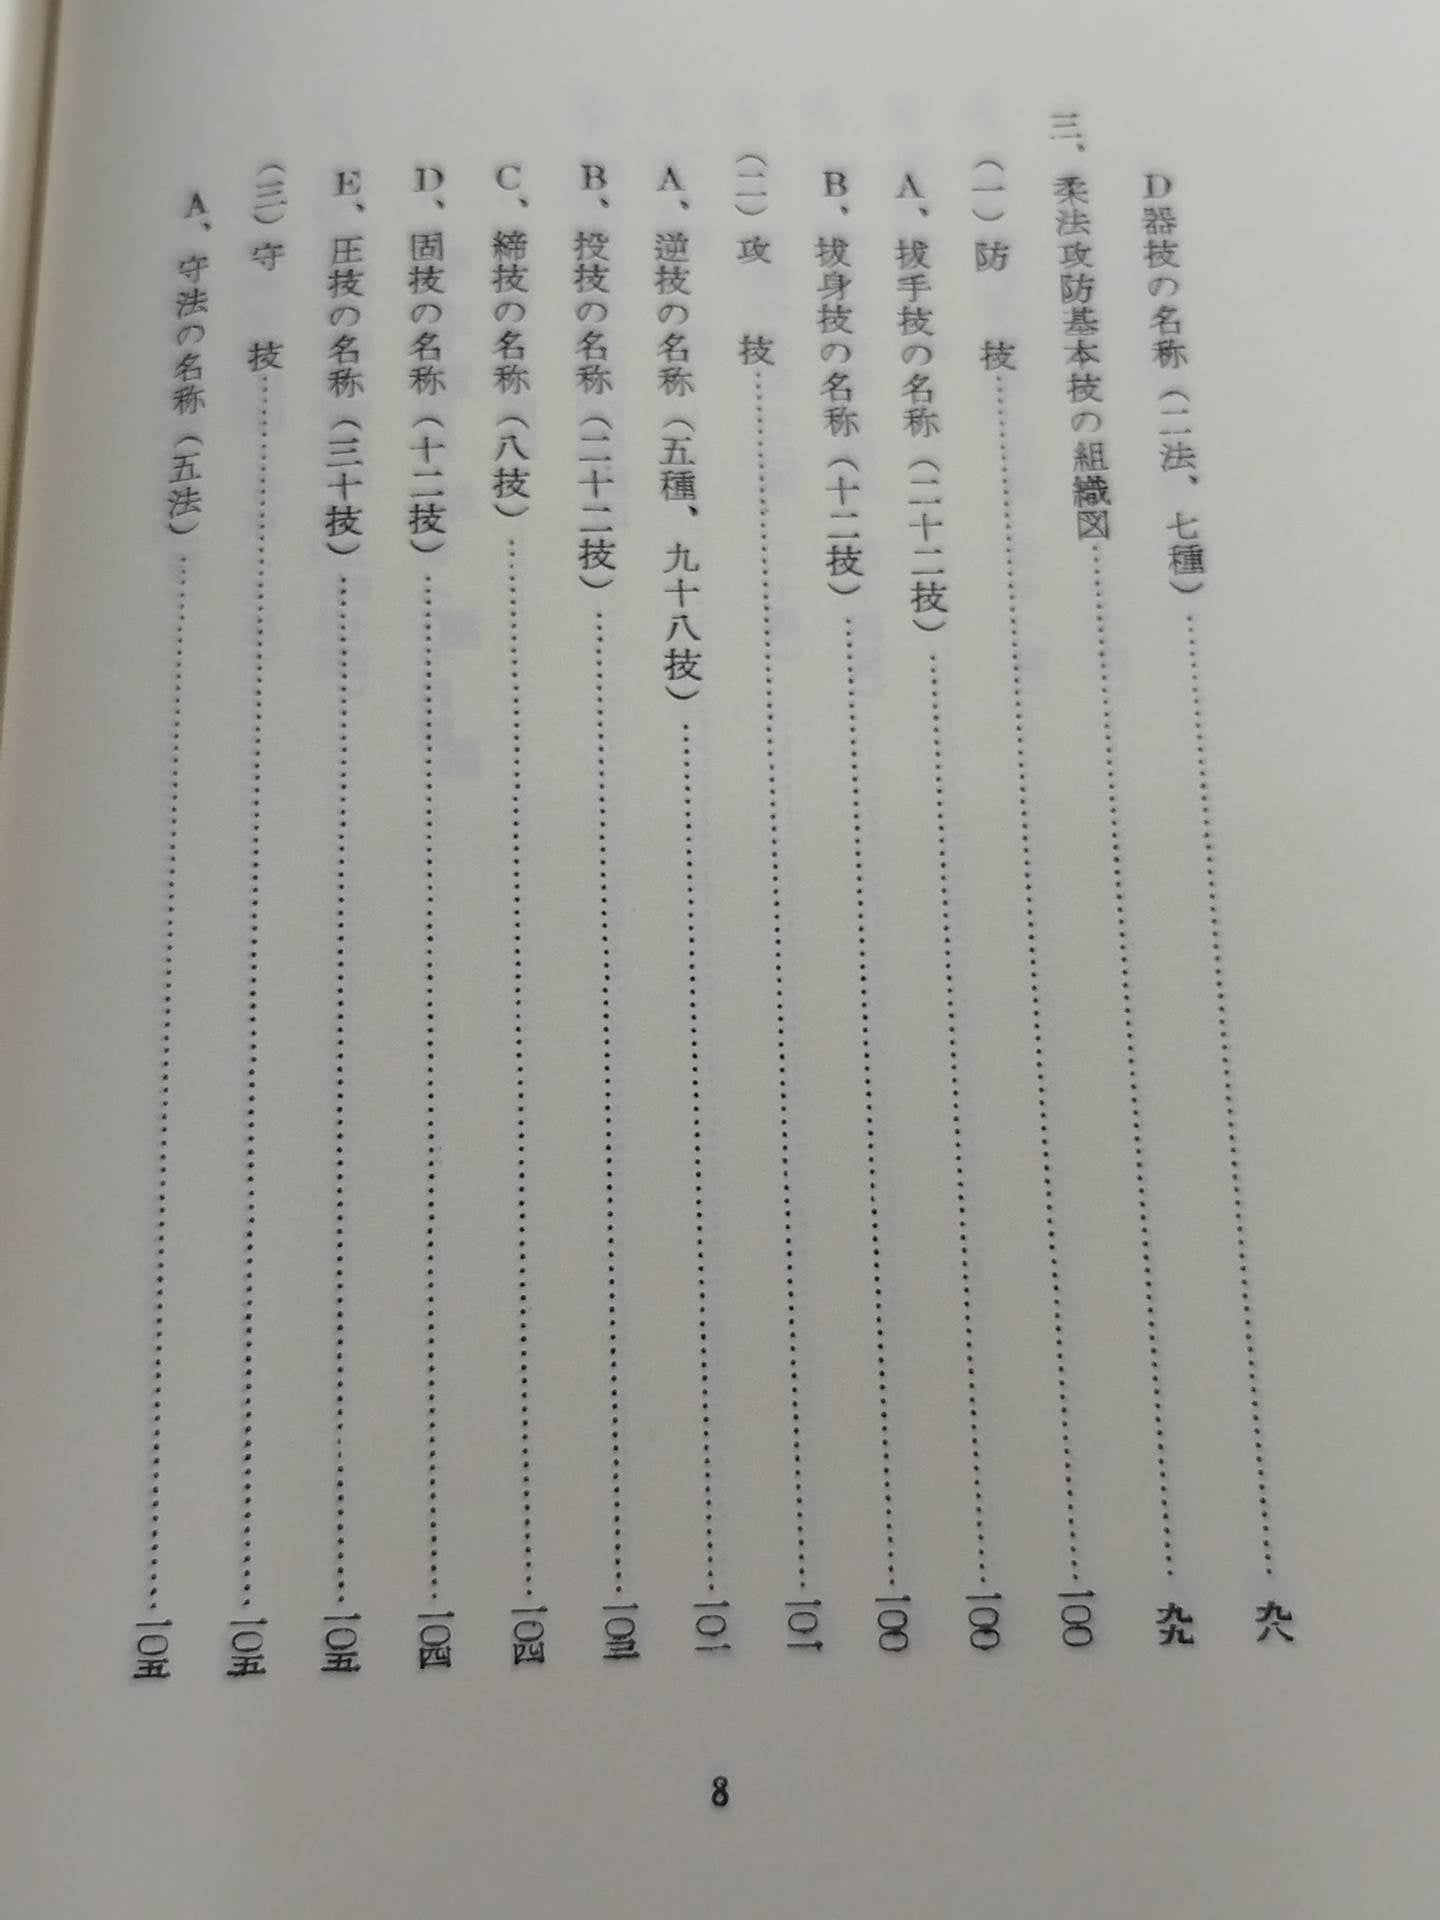 D器技の名称（二法、七種）……九八
三、柔法攻防基本技の組織図……九九
（一）防　技……一〇〇
A、抜手技の名称（二十二技）……一〇〇
B、抜身技の名称（十二技）……一〇〇
（二）攻　技……一〇一
A、逆技の名称（五種、九十八技）……一〇一
B、投技の名称（二十二技）……一〇三
C、締技の名称（八技）……一〇四
D、固技の名称（十二技）……一〇四
E、圧技の名称（三十技）……一〇五
（三）守　技……一〇五
A、守法の名称（五法）……一〇五
8